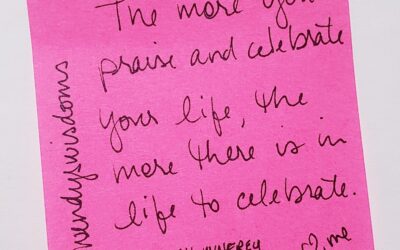 The more you
praise and celebrate
your life, the
more there is in
life to celebrate.
♡, me
wendyswisdoms